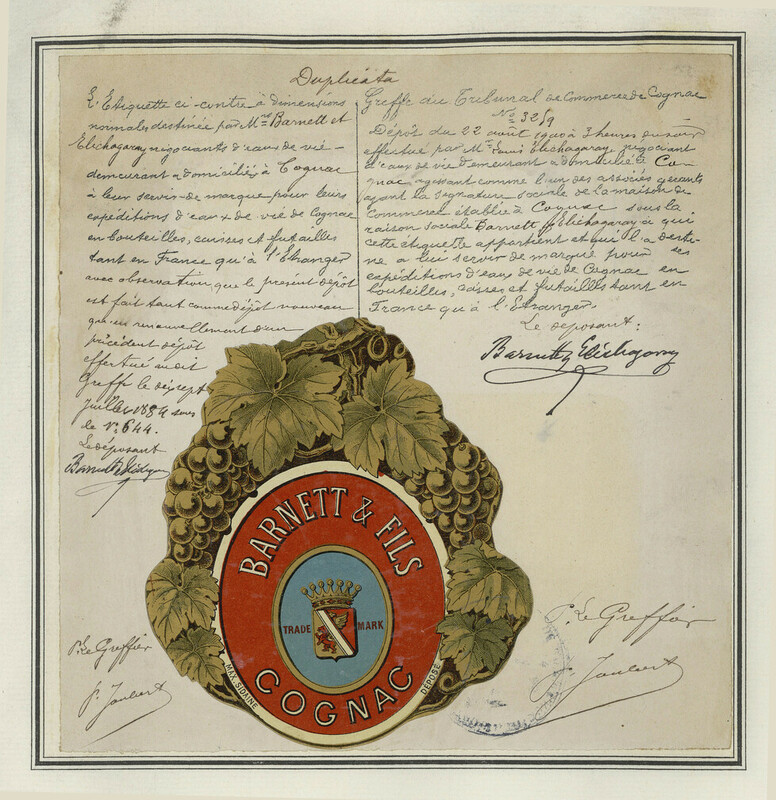 Duplicata
L'Etiquette ci-contre à dimensions
normales destinée par Mrs Barnett et
Elichagaray négociants d'eaux de vie-
demeurant & domiciliés à Cognac
à leur servir de marque pour leurs
expéditions d'eaux de vie de Cognac
en bouteilles, caisses et futailles
tant en France qu'à l'Etranger
avec observation que le présent dépôt
est fait tant comme dépôt nouveau
qu'en renouvellement d'un
précédent dépôt
effectué au dit
Greffe le dix sept
Juillet 1884 sous
le No 644.
Le déposant
Barnett & Elichagaray
P. Le Greffier
P. Joubert
Greffe du Tribunal de Commerce de Cognac
No 3219
Dépôt du 22 août 1900 à 3 heures du soir
effectué par Mr Louis Elichagaray, négociant
d'eaux de vie demeurant & domicilié à Co-
gnac, agissant comme l'un des associés gérants
ayant la signature sociale de la maison de
Commerce établie à Cognac sous la
raison sociale Barnett & Elichagaray à qui
cette étiquette appartient et qui l'a desti-
née à lui servir de marque pour ses
expéditions d'eaux de vie de Cognac en
bouteilles, caisses et futailles tant en
France qu'à l'Etranger.
Le déposant:
Barnett & Elichagaray
BARNETT & FILS
TRADE MARK
COGNAC
MAX. SIDAINE
DÉPOSÉ
P. Le Greffier
P. Joubert